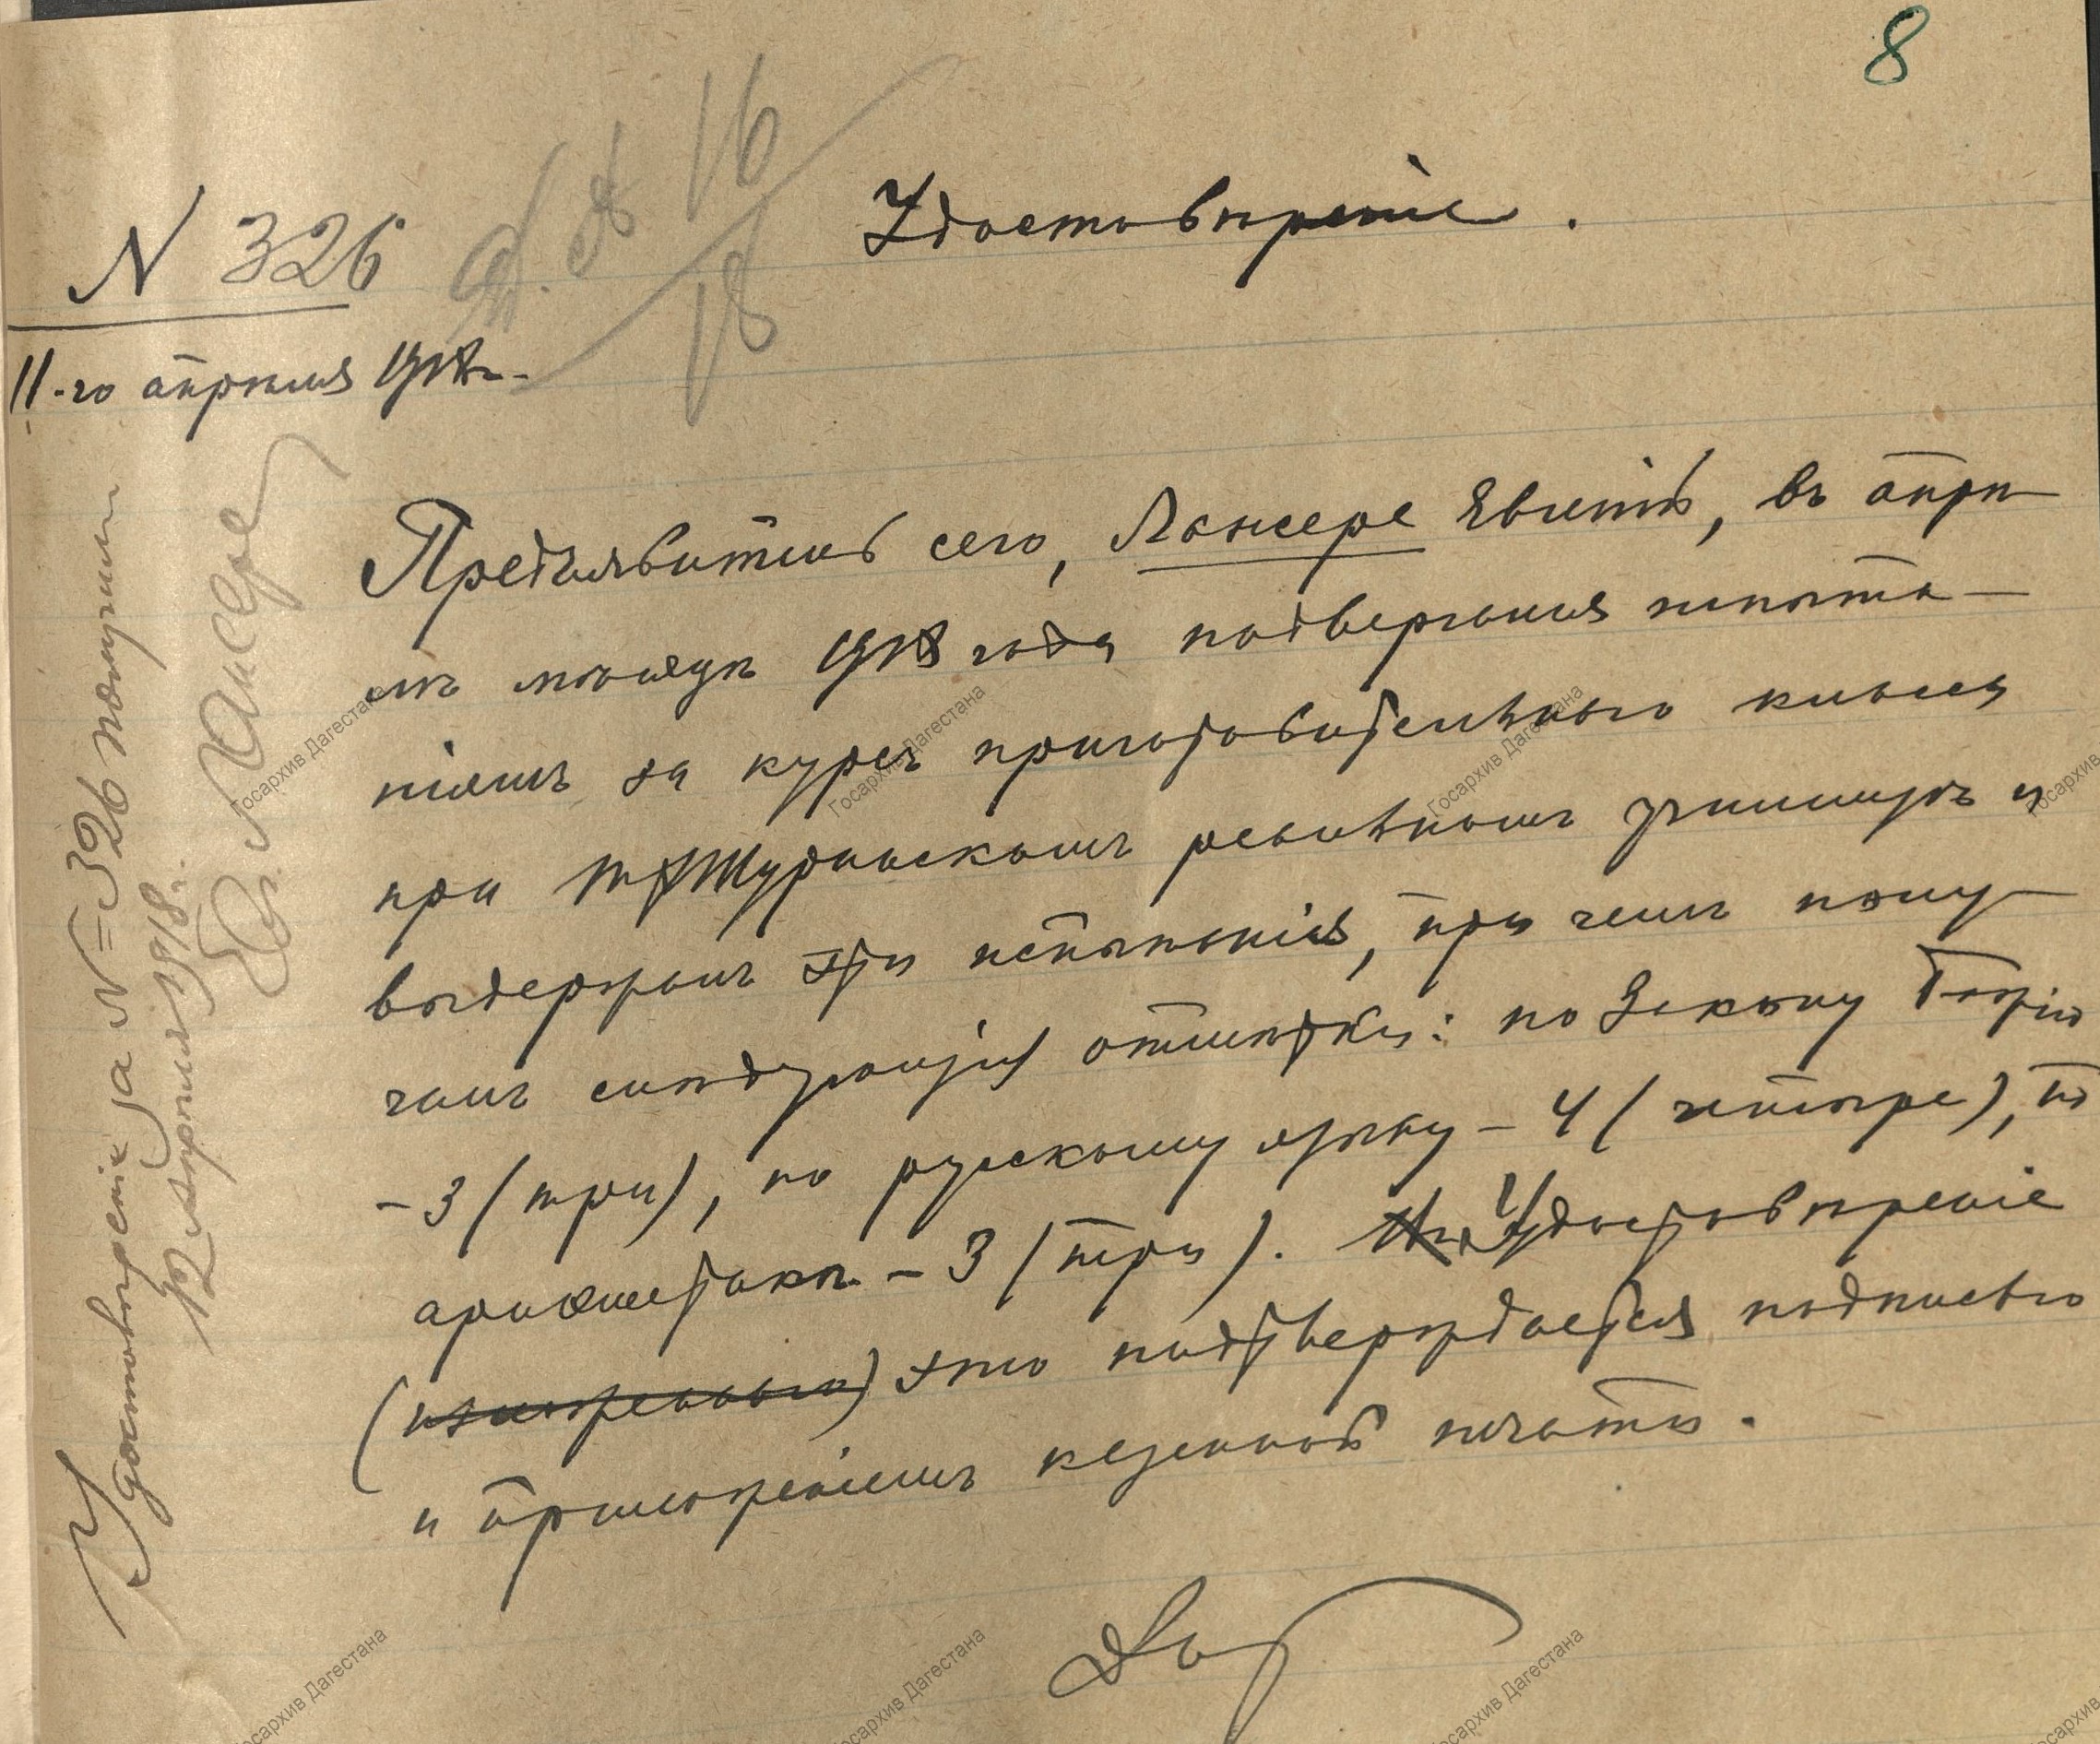 8
N 326
16
18
Удостовѣреніе.
11-го апрѣля 1918 г.
Предъявитель сего, Лансере Евгеній, въ апрѣ-
лѣ мѣсяцѣ 1918 года подвергался испыта-
ніямъ за курсъ приготовительнаго класса
при Т Шуринскомъ реальномъ училищѣ и
выдержалъ эти испытанія, при чемъ полу-
чилъ слѣдующія отмѣтки: по Закону Божію
- 3 (три), по русскому языку - 4 (четыре), по
ариѳметикѣ - 3 (три). Удостовѣреніе
это подтверждается подписью
и приложеніемъ казенной печати.
Удостовѣреніе за N= 326 получилъ
12 Апрѣля 1918 г.
Евг. Лансере
Госархив Дагестана